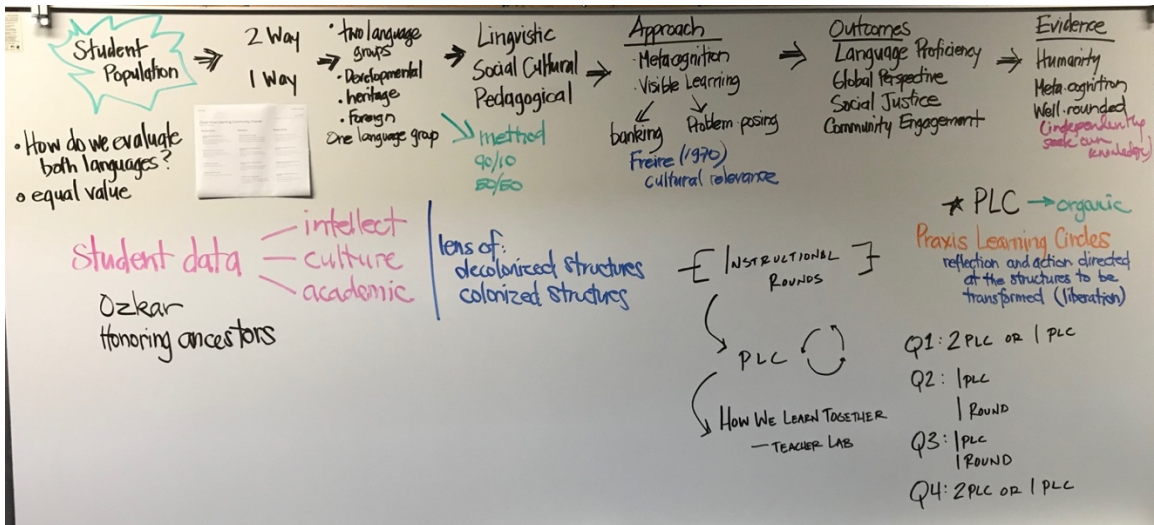 Student
Population
2 Way
1 Way
• two language
groups
• Developmental
• heritage
• Foreign
One language group
Lingvistic
Social Cultural
Pedagogical
method
90/10
50/50
Approach
• Metacognition
• Visible Learning
banking
Problem-posing
Freire (1970)
cultural relevance
Outcomes
Language Proficiency
Global Perspective
Social Justice
Community Engagement
Evidence
Humanity
Meta-cognition
Well-rounded
(independently
seek own
knowledge)
• How do we evaluate
both languages?
• equal value
Student data
intellect
culture
academic
Ozkar
Honoring ancestors
lens of:
decolonized structures
colonized structures
INSTRUCTIONAL
ROUNDS
PLC
HOW WE LEARN TOGETHER
— TEACHER LAB
★ PLC → organic
Praxis Learning Circles
reflection and action directed
at the structures to be
transformed (liberation)
Q1: 2 PLC OR 1 PLC
Q2: 1 PLC
1 ROUND
Q3: 1 PLC
1 ROUND
Q4: 2 PLC OR 1 PLC